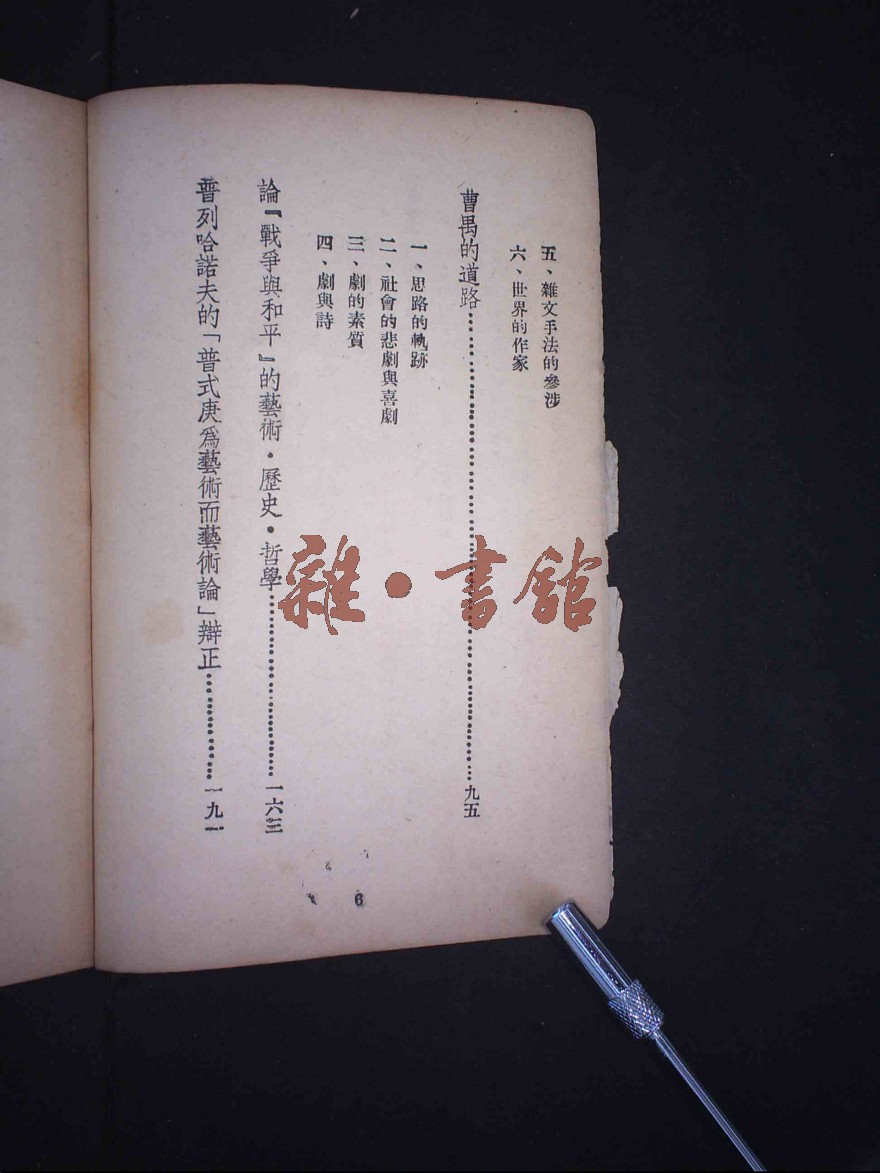 五、雜文手法的參涉
六、世界的作家
曹禺的道路……………………………………九五
一、思路的軌跡
二、社會的悲劇與喜劇
三、劇的素質
四、劇與詩
論『戰爭與和平』的藝術·歷史·哲學……………………一六三
普列哈諾夫的「普式庚爲藝術而藝術論」辯正……………一九一
6
雜·書館